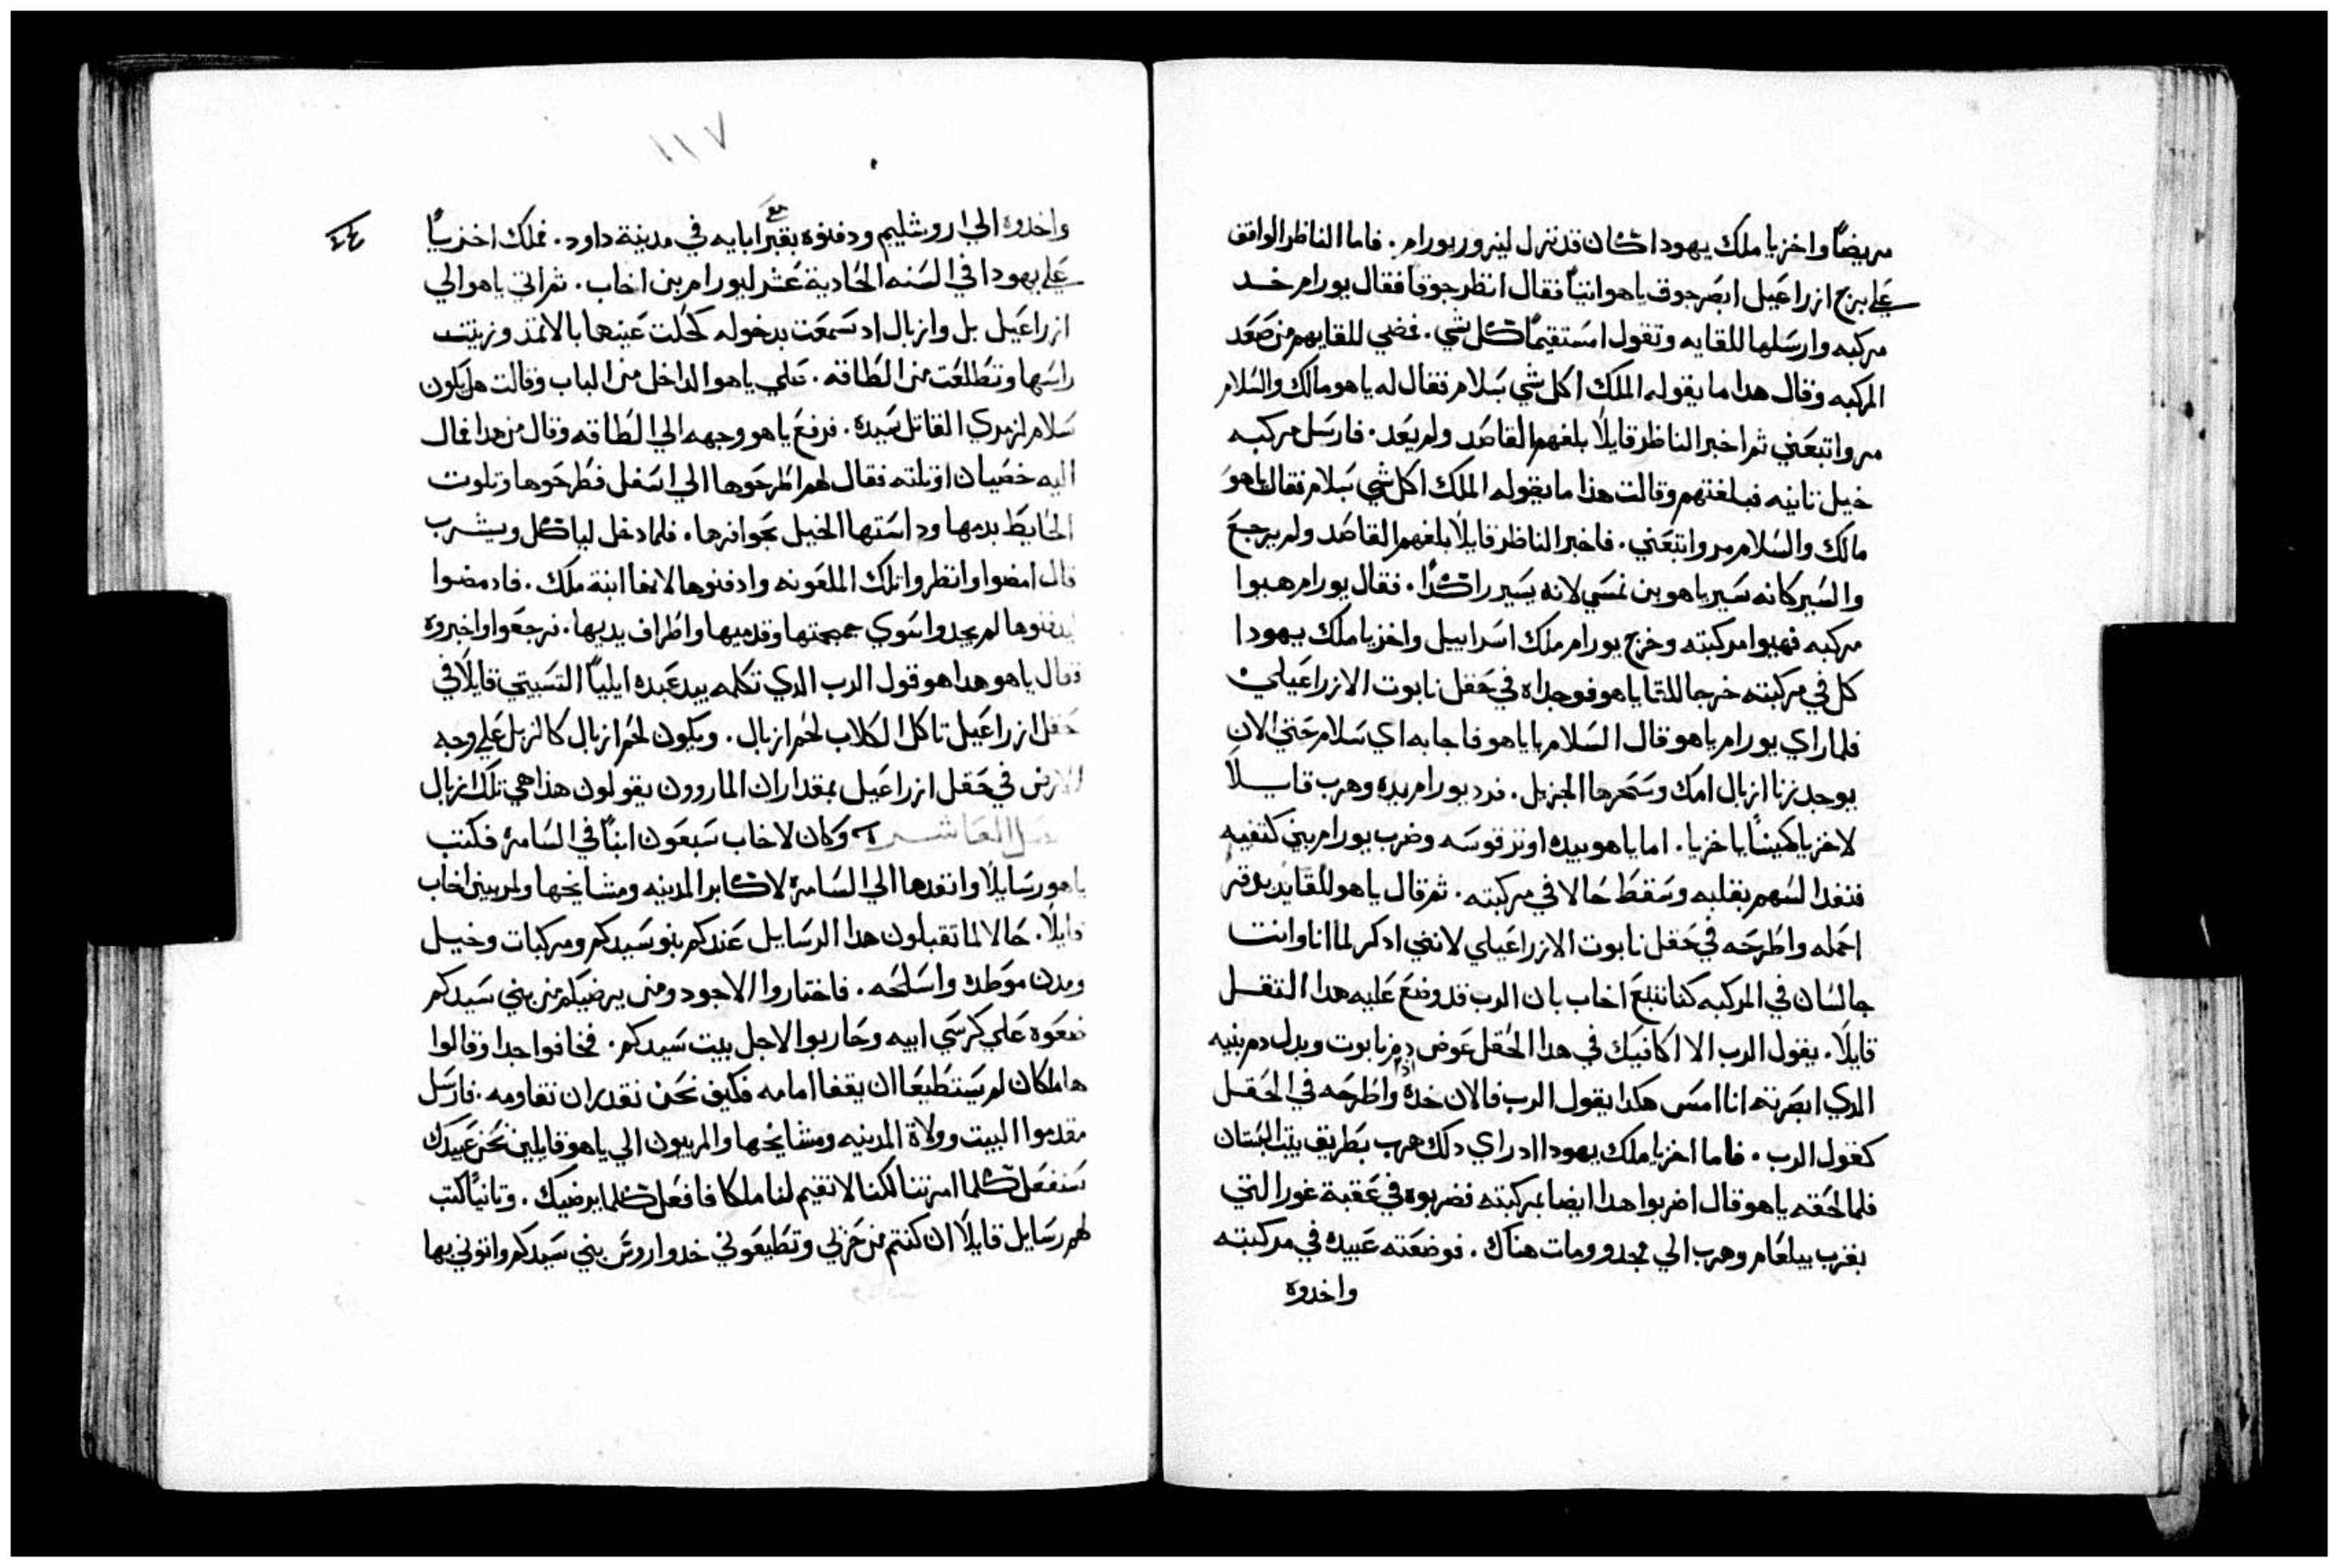 مريضًا واخزيا ملك يهودا كان قد نزل ليزور يورام. فاما الناظر الواقف
علي برج ازراعيل ابصر جوق ياهو اتيًا فقال انظر جوقا فقال يورام خد
مركبه وارسلها للقايه وتقول امستقيمًا كل شي. فمضي للقايهم من صعد
المركبه وقال هدا ما يقوله الملك اكل شي سلام فقال له ياهو مالك والسلام
مر واتبعني ثم اخبر الناظر قايلًا بلغهم القاصد ولم يعد. فارسل مركبه
خيل تانيه فبلغتهم وقالت هذا ما يقوله الملك اكل شي سلام فقال ياهو
مالك والسلام مر واتبعني. فاخبر الناظر قايلًا بلغهم القاصد ولم يرجع
والسير كانه سير ياهو بن نمسي لانه يسير راكدًا. فقال يورام هيوا
مركبه فهيوا مركبته وخرج يورام ملك اسراييل واخزيا ملك يهودا
كل في مركبته خرجا للقا ياهو فوجداه في حقل نابوت الازراعيلي
فلما راي يورام ياهو قال السلام يا ياهو فاجابه اي سلام حتي الان
يوجد زنا ازبال امك وسحرها الجزيل. فرد يورام يده وهرب قايلًا
لاخزيا كمينًا يا خزيا. اما ياهو بيده اوتر قوسه وضرب يورام بين كتفيه
فنفدا لسهم بقلبه وسقط حالا في مركبته. ثم قال ياهو للقايد بدقر
احمله واطرحه في حقل نابوت الازراعيلي لانني ادكر لما انا وانت
جالسان في المركبه كنا نتبع اخاب بان الرب قد وضع عليه هدا التقل
قايلًا. يقول الرب الا اكافيك في هدا الحقل عوض دم نابوت وبدل دم بنيه
الدي ابصرته انا امس هكدا يقول الرب فالان خده واطرحه في الحقل
كقول الرب. فاما اخزيا ملك يهودا اد راي دلك هرب بطريق بيت البستان
فلما لحقه ياهو قال اضربوا هدا ايضا بمركبته فضربوه في عقبة غور التي
بقرب يبلعام وهرب الي مجدو ومات هناك. فوضعته عبيده في مركبته
واخدوه
١١٧
واخدوه الي اروشليم ودفنوه بقبر مع ابايه في مدينة داود. فملك اخزيا
علي يهودا في السنه الحادية عشر ليورام بن اخاب. ثم اتي ياهو الي
ازراعيل بل وازبال اد سمعت بدخوله كحلت عينها بالاتمد وزينت
راسها وتطلعت من الطاقه. علي ياهو الداخل من الباب وقالت هل يكون
سلام لزمري القاتل سيده. فرفع ياهو وجهه الي الطاقه وقال من هدا فمال
اليه خصيان او تلته فقال لهم اطرحوها الي اسفل فطرحوها وتلوت
الحايط بدمها وداستها الخيل بحوافرها. فلما دخل لياكل ويشرب
قال امضوا وانظروا تلك الملعونه وادفنوها لانها ابنة ملك. فاد مضوا
ليدفنوها لم يجدوا سوي جمجمتها وقدميها واطراف يديها. فرجعوا واخبروه
فقال ياهو هدا هو قول الرب الدي تكلمه بيد عبده ايليا التسبيتي قايلًا في
حقل ازراعيل تاكل الكلاب لحم ازبال. ويكون لحم ازبال كالزبل علي وجه
الارض في حقل ازراعيل بمقدار ان الماروون يقولون هذا هي تلك ازبال
العاشر وكان لاخاب سبعون ابنًا في السامره فكتب
ياهو رسايلًا وانفدها الي السامره لاكابر المدينه ومشايخها ولمربيين اخاب
قايلًا. حالا لما تقبلون هدا الرسايل عندكم بنو سيدكم ومركبات وخيل
ومدن موطده واسلحه. فاختاروا الاجود ومن يرضيكم من بني سيدكم
ضعوه علي كرسي ابيه وحاربوا لاجل بيت سيدكم. فخافوا جدا وقالوا
ها ملكان لم يستطيعا ان يقفا امامه فكيف نحن نقدر ان نقاومه. فارسل
مقدموا البيت وولاة المدينه ومشايخها والمربيون الي ياهو قايلين نحن عبيدك
سنفعل كلما امرتنا لكنا لا نقيم لنا ملكا فافعل كلما يرضيك. وتانيًا كتب
لهم رسايل قايلًا ان كنتم من حزبي وتطيعوني خدوا رووس بني سيدكم واتوني بها